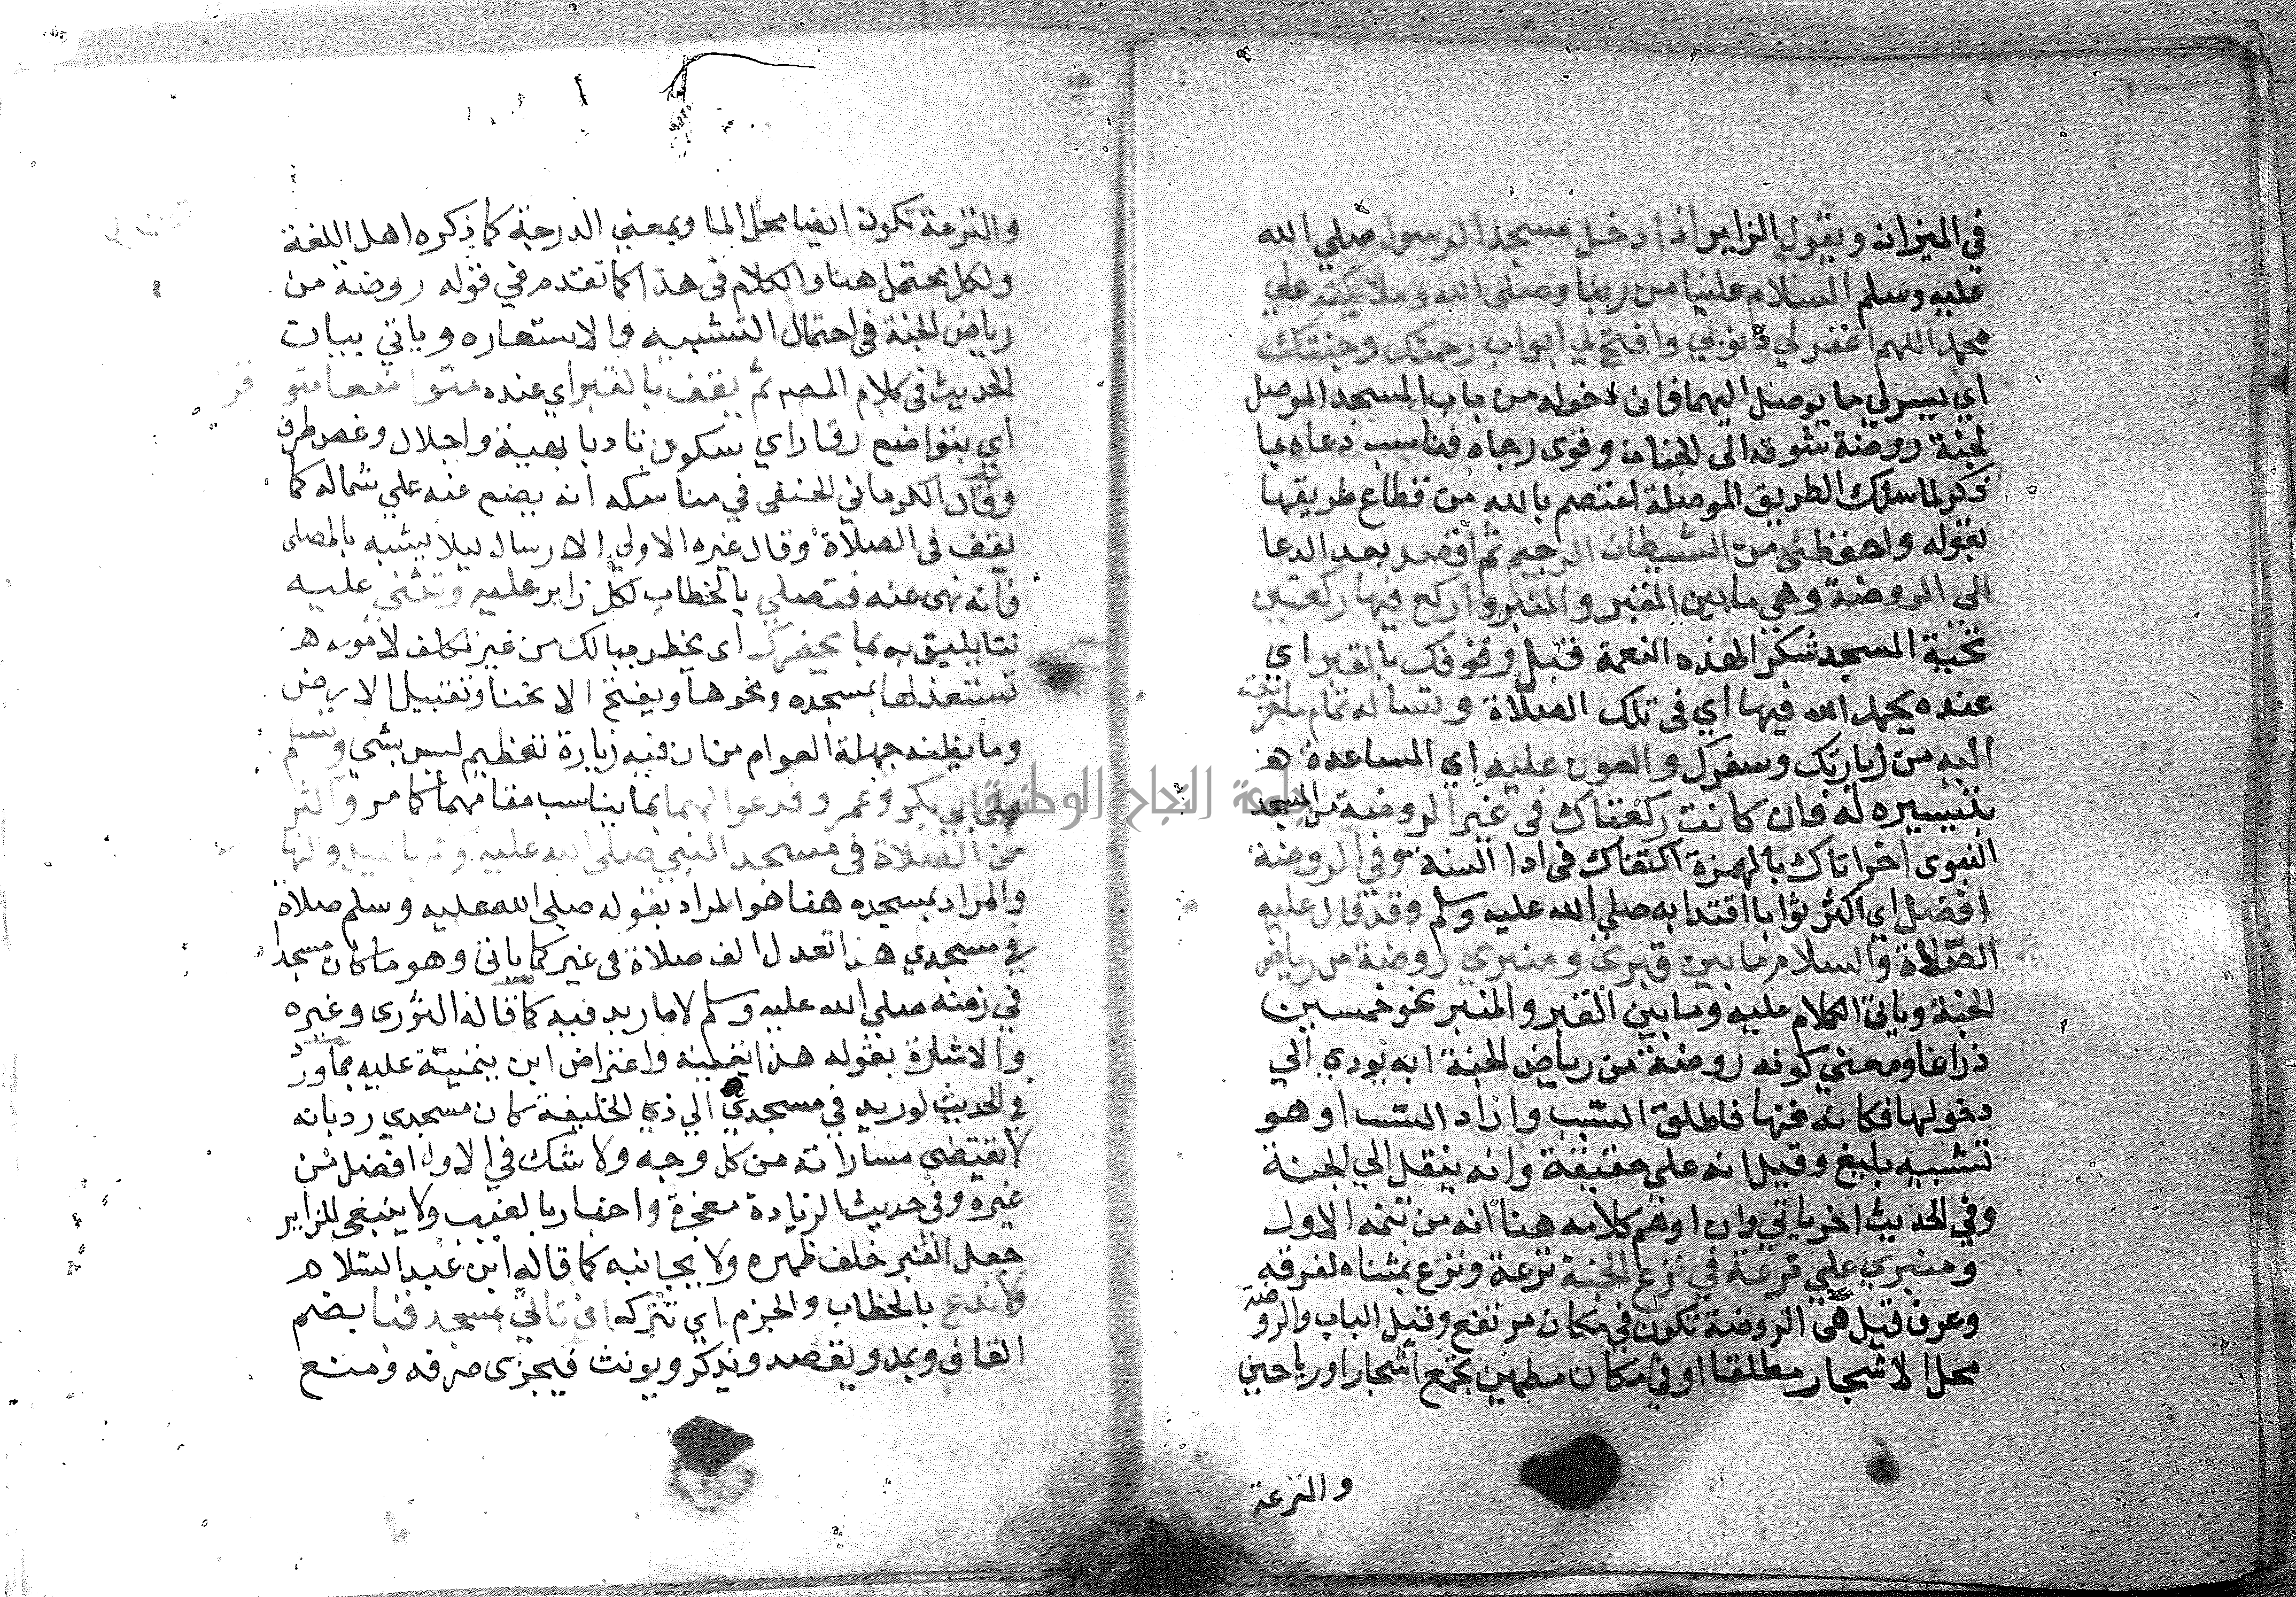 في الميزان ويقول الزاير اذا دخل مسجد الرسول صلي الله
عليه وسلم السلام علينا من ربنا وصلى الله وملايكته علي
محمد اللهم اغفرلي ذنوبي وافتح لي ابواب رحمتك وجنتك
اي يسر لي ما يوصل اليهما فان دخوله من باب المسجد الموصل
لجنة روضة شوقه الى الجنان وقوى رجاه فناسب دعاه بما
ذكر لما سلك الطريق الموصلة اعتصم بالله من قطاع طريقها
بقوله واحفظني من الشيطان الرجيم ثم اقصد بعد الدعا
الي الروضة وهي مابين القبر والمنبر واركع فيها ركعتين
تحية المسجد شكرا لهذه النعمة قبل وقوفك بالقبر اي
عنده بحمد الله فيها اي في تلك الصلاة وتساله تمام ما خرجت
اليه من زيارتك وسفرك والعون عليه اي المساعدة
بتيسيره له فان كانت ركعتاك في غير الروضة من المسجد
النبوى اجزاتاك بالهمزة اكتفاك في ادا السنة وفي الروضة
افضل اي اكثر ثوابا اقتدا به صلي الله عليه وسلم وقد قال عليه
الصلاة والسلام ما بين قبري ومنبري روضة من رياض
الجنة وياتي الكلام عليه وما بين القبر والمنبر نحو خمسين
ذراعا ومعني كونه روضة من رياض الجنة انه يودي الي
دخولها فكانه منها فاطلق السبب واراد المسبب او هو
تشبيه بليغ وقيل انه علي حقيقة وانه ينقل الي الجنة
وفي الحديث اخر ياتي وان اوهم كلامه هنا انه من تتمه الاول
ومنبري علي ترعة في ترع الجنة ترعة وترع بمثناه لغرفه
وغرف قيل هي الروضة تكون في مكان مرتفع وقيل الباب والروضة
محل الاشجار مطلقا او في مكان مطمين بجمع اشجارا ورياحين
والترعة
والترعة تكون ايضا محل الما وبمعني الدرجة كما ذكره اهل اللغة
ولكل محتمل هنا والكلام في هذا كما تقدم في قوله روضة من
رياض الجنة في احتمال التشبيه والاستعاره وياتي بيان
الحديث في كلام المص ثم يقف بالقبر اي عنده
اي بتواضع وقار اي سكون تادبا بهيبة واجلال وغض طرف
وقال الكرماني الحنفي في مناسكه انه يضع عنه علي شماله كما
يقف في الصلاة وقال غيره الاولي الارسال ليلا يشبه بالمصلي
فانه نهي عنه فتصلي بالخطاب لكل زاير عليه وتثني عليه
ثنا يليق به بما يحضرك اى يخطر ببالك من غير تكلف لامور
تستعد لها بمسجده ونحوها ويفتح الانحنا وتقبيل الارض
وما يظنه جهلة العوام من ان فيه زيارة تعظيم ليس بشي وتسلم
ابي بكر وعمر وتدعوا لهما بما يناسب مقامهما كما مر واكثر
من الصلاة في مسجد النبي صلى الله عليه
والمراد بمسجده هنا هو المراد بقوله صلي الله عليه وسلم صلاة
في مسجدي هذا تعدل الف صلاة في غيره كما ياتي وهو ما كان مسجدا
في زمنه صلي الله عليه وسلم لا ما زيد فيه كما قاله النووى وغيره
والاشارة بقوله هذا تعينه واعتراض ابن تيمية عليه بما ورد
في الحديث لو زيد في مسجدي الي ذي الخليفة كان مسجدي رد بانه
لا يقتضي مساواته من كل وجه ولا شك في الاول افضل من
غيره وفي حديث الزيادة معجزة واخبار بالغيب ولا ينبغي للزاير
جعل القبر خلف ظهره ولا بجانبه كما قاله ابن عبد السلام
ولا تدع بالخطاب والجزم اي تترك ان تاتي مسجد قبا بضم
القاف وبمد ويقصر ويذكر ويونث فيجزى صرفه ومنع